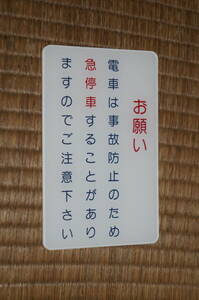 お願い
電車は事故防止のため
急停車することがあり
ますのでご注意下さい